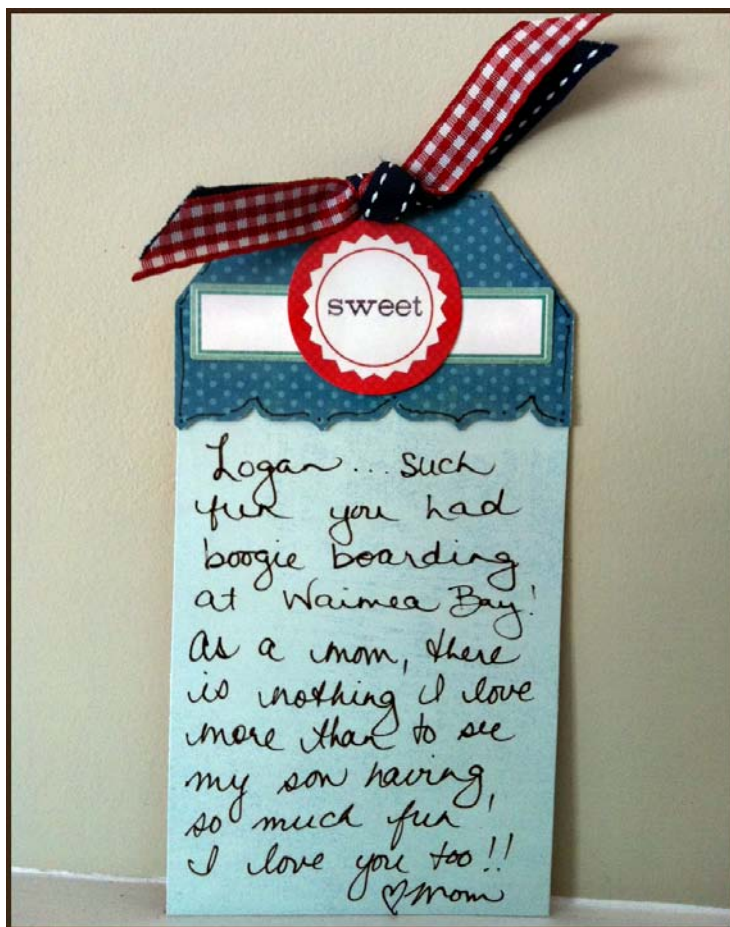 sweet
Logan... such
fun you had
boogie boarding
at Waimea Bay!
As a mom, there
is nothing I love
more than to see
my son having
so much fun!
I love you too!!
♡Mom